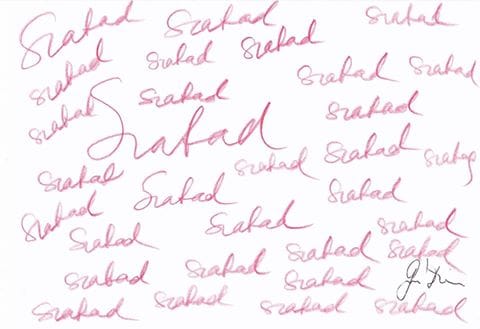 Szabad Szabad Szabad
Szabad Szabad Szabad
Szabad Szabad
Szabad Szabad Szabad
Szabad
Szabad Szabad Szabad Szabad
Szabad Szabad
Szabad Szabad Szabad
Szabad Szabad Szabad
Szabad Szabad Szabad
Szabad Szabad Szabad Szabad